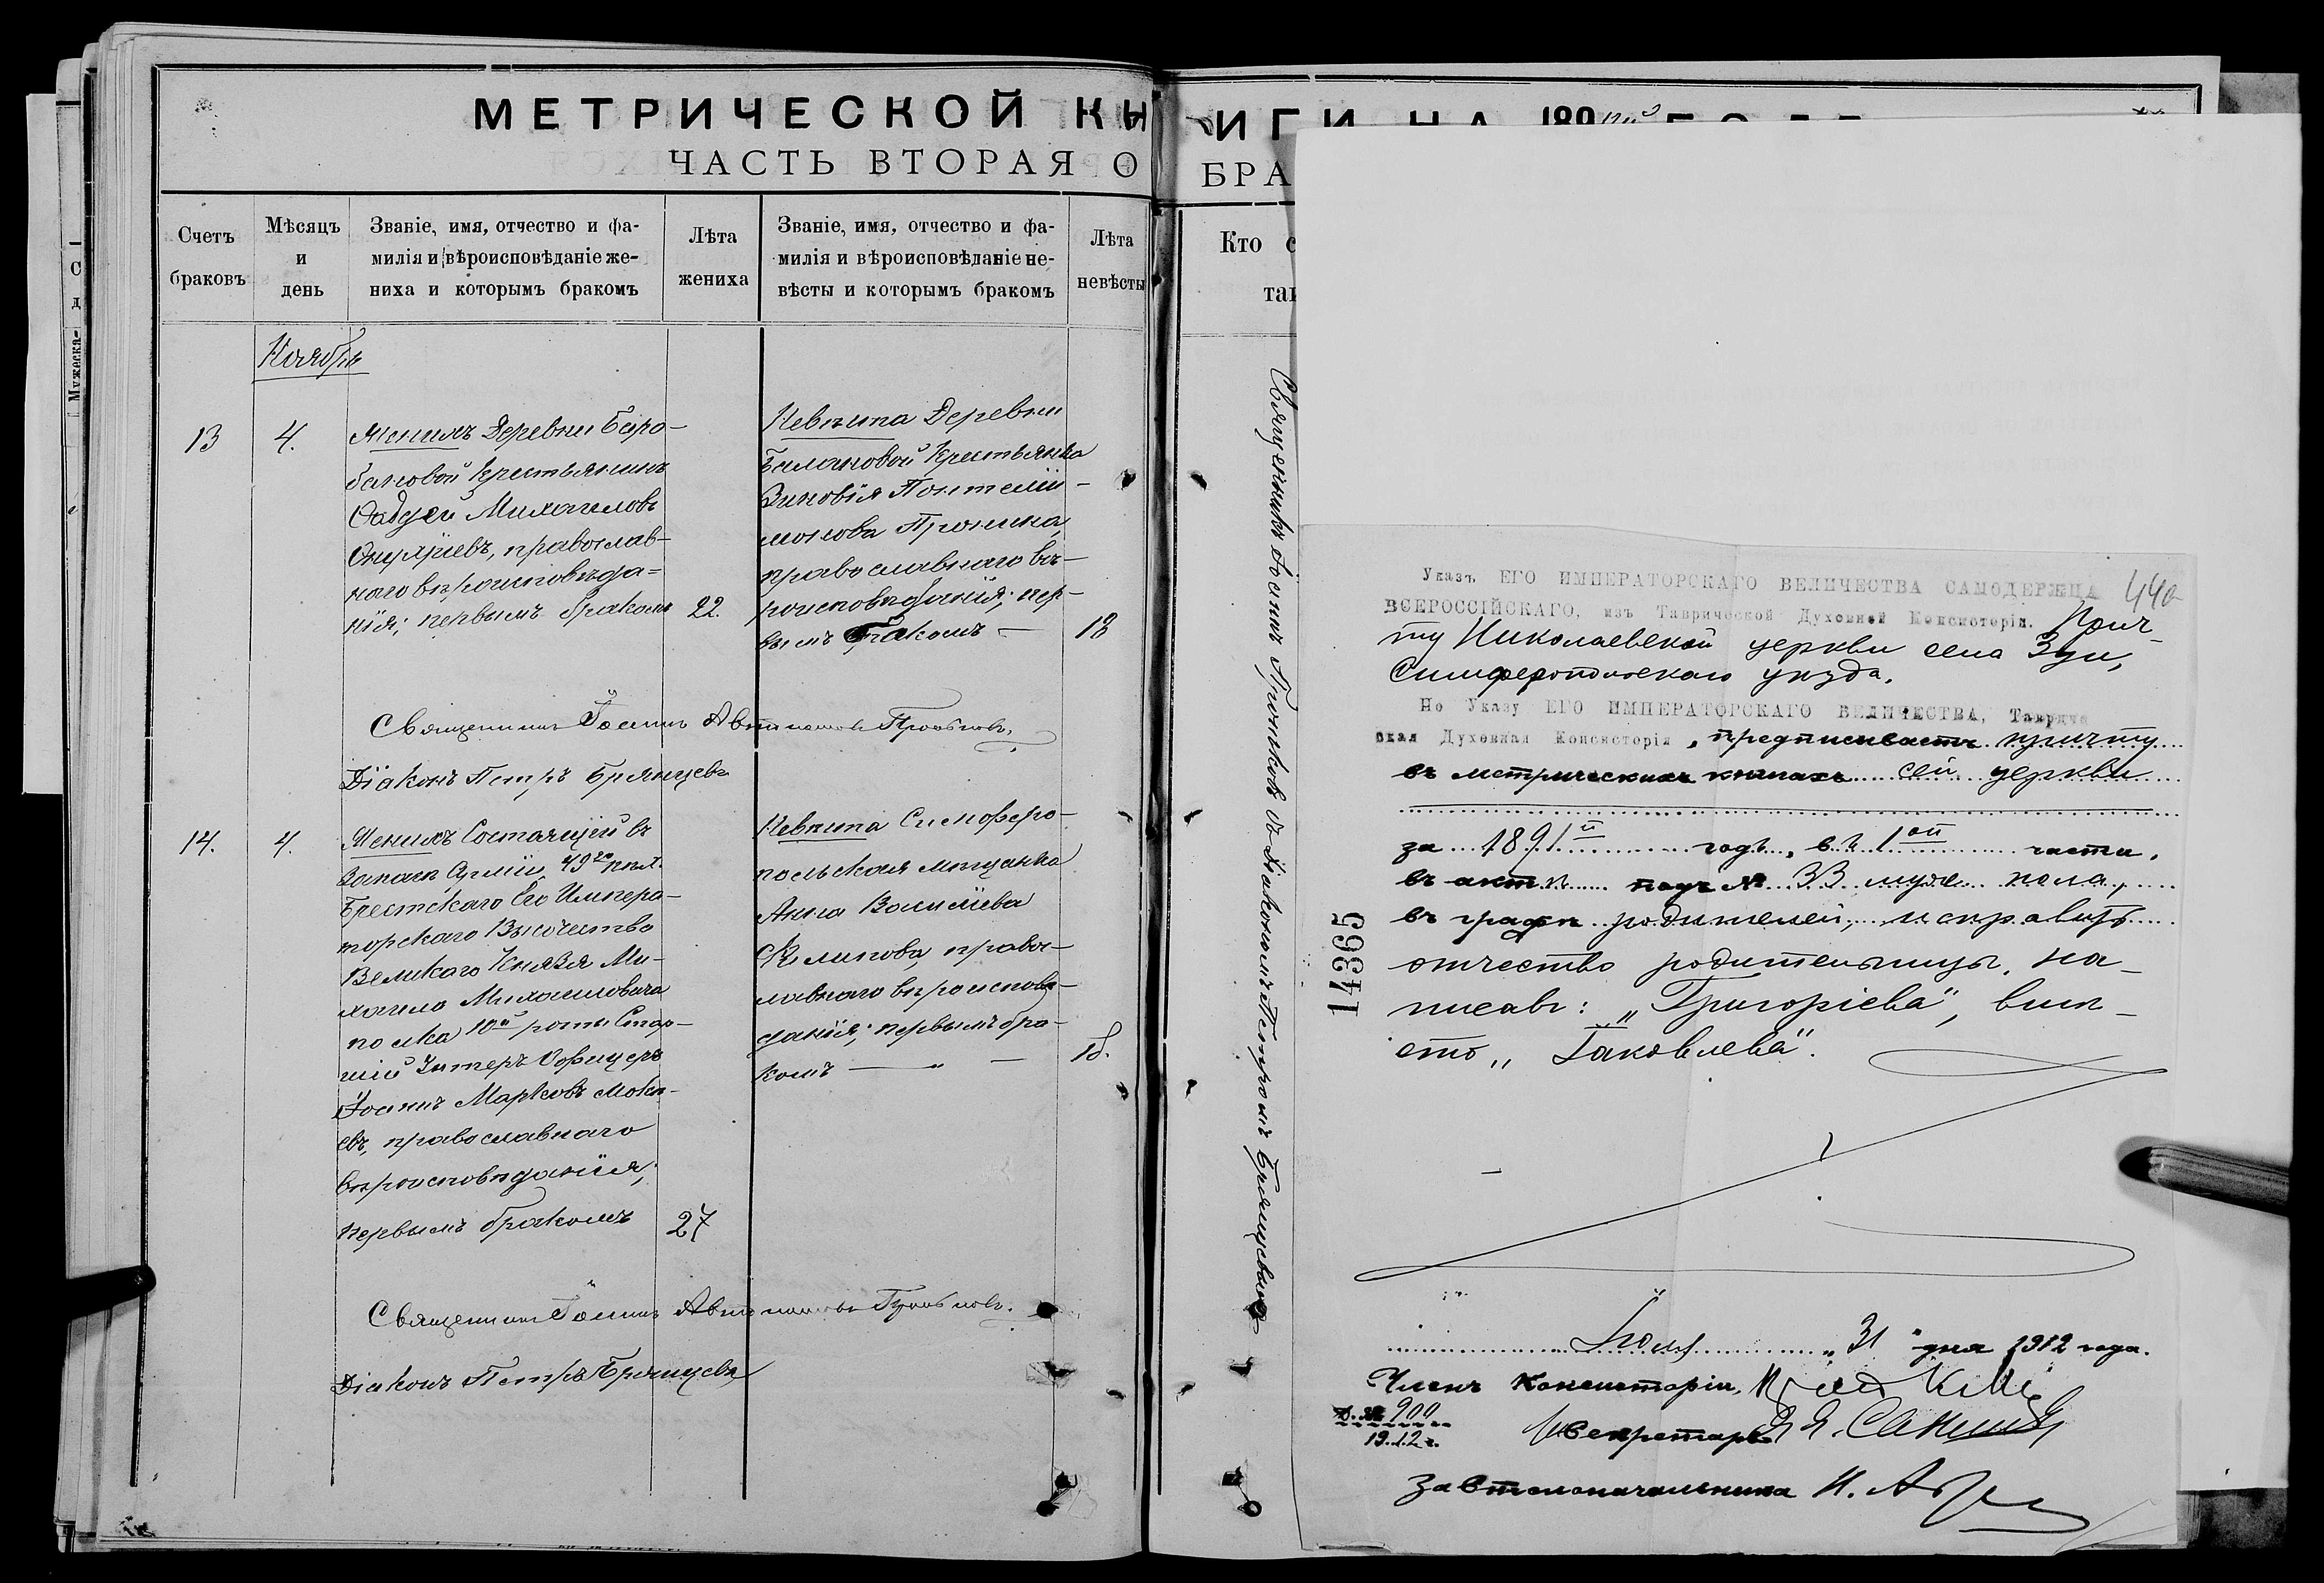 МЕТРИЧЕСКОЙ КН
ЧАСТЬ ВТОРАЯ О
Счетъ
браковъ
Мѣсяцъ
и
день
Званіе, имя, отчество и фа-
милія и вѣроисповѣданіе же-
ниха и которымъ бракомъ
Лѣта
жениха
Званіе, имя, отчество и фа-
милія и вѣроисповѣданіе не-
вѣсты и которымъ бракомъ
Лѣта
невѣсты
Ноябрь
13
4.
Женихъ Деревни Бара-
бановой Крестьянинъ
Михаиловъ
православ-
наго вѣроисповѣда=
нія; первымъ бракомъ
22.
Невѣста Деревни
Балановой Крестьянка
Зиновія Пантелій-
монова Пронина,
православнаго вѣ-
роисповѣданія; пер-
вымъ бракомъ —
18
Священникъ Іоаннъ
Діаконъ Петръ Брянцевъ
14.
4.
Женихъ Состоящій въ
запасѣ Арміи 49го пѣх.
Брестскаго Его Импера-
торскаго Высочества
Великаго Князя Ми-
хаила Михаиловича
полка 10й роты Стар-
шій Унтеръ Офицеръ
Іоаннъ Марковъ
евъ, православнаго
вѣроисповѣданія;
первымъ бракомъ
27
Невѣста Симферо-
польская мѣщанка
Анна Василіева
Климова, правос-
лавнаго вѣроисповѣ-
данія; первымъ бра-
комъ — „ —
18.
Священникъ Іоаннъ
Діаконъ Петръ Брянцевъ
ИГИ НА 189
БРА
Кто с
так
Священникъ Іоаннъ съ діакономъ Петромъ Брянцевымъ
Указъ ЕГО ИМПЕРАТОРСКАГО ВЕЛИЧЕСТВА САМОДЕРЖЦА
440
ВСЕРОССІЙСКАГО, изъ Таврической Духовной Консисторіи. Прич-
ту Николаевской церкви села Зуи,
Симферопольскаго уѣзда.
По Указу ЕГО ИМПЕРАТОРСКАГО ВЕЛИЧЕСТВА, Тавриче
ская Духовная Консисторія, предписываетъ причту
въ метрическихъ книгахъ сей церкви
за 1891й годъ, въ 1ой части,
въ актѣ подъ № 33 муж. пола,
въ графѣ родителей, исправить
отчество родительницы, на-
писавъ: „Григоріева", вмѣ-
сто „Іаковлева".
14365
Іюля „31" дня 1912 года.
Членъ Консисторіи,
Д. № 900
1912 г.
Секретарь
за Столоначальника